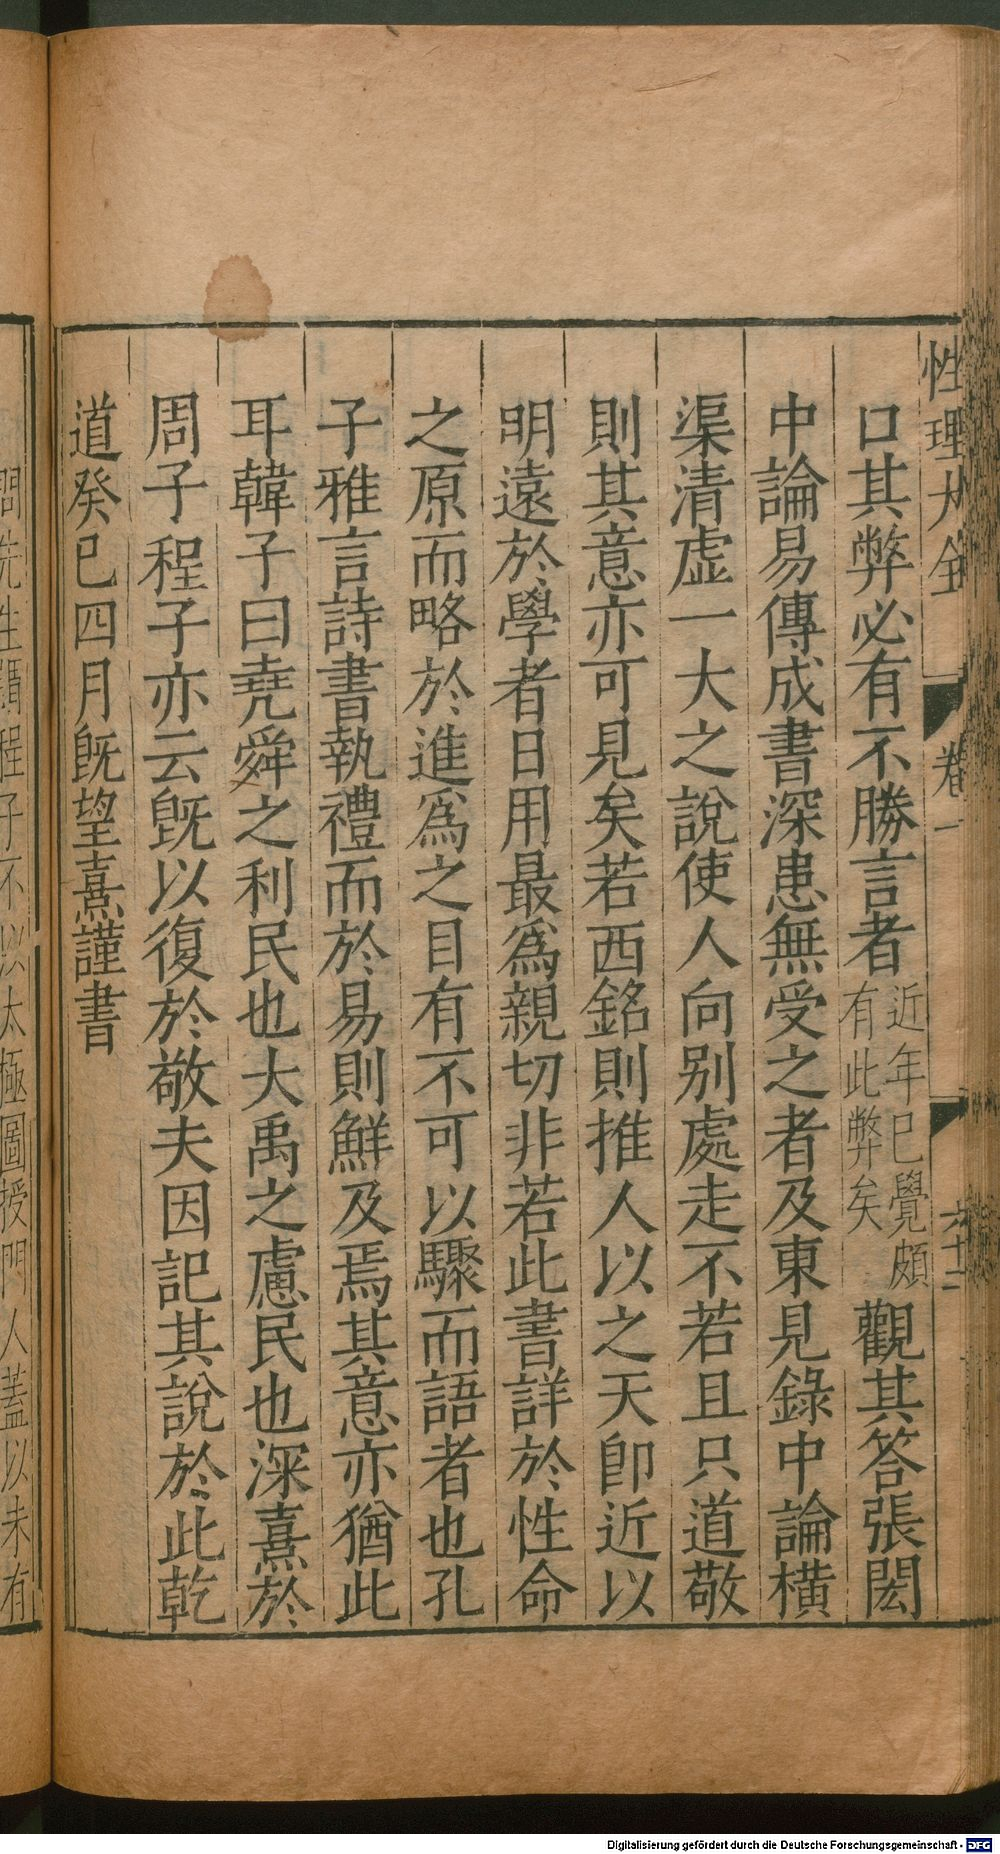 性理大全 卷一 六十二
口其弊必有不勝言者近年已覺頗有此弊矣觀其答張閎
中論易傳成書深患無受之者及東見錄中論橫
渠清虛一大之說使人向別處走不若且只道敬
則其意亦可見矣若西銘則推人以之天卽近以
明遠於學者日用最爲親切非若此書詳於性命
之原而略於進爲之目有不可以驟而語者也孔
子雅言詩書執禮而於易則鮮及焉其意亦猶此
耳韓子曰堯舜之利民也大禹之慮民也深熹於
周子程子亦云旣以復於敬夫因記其說於此乾
道癸巳四月旣望熹謹書
問先生謂程子不以太極圖授門人蓋以未有
Digitalisierung gefördert durch die Deutsche Forschungsgemeinschaft - DFG